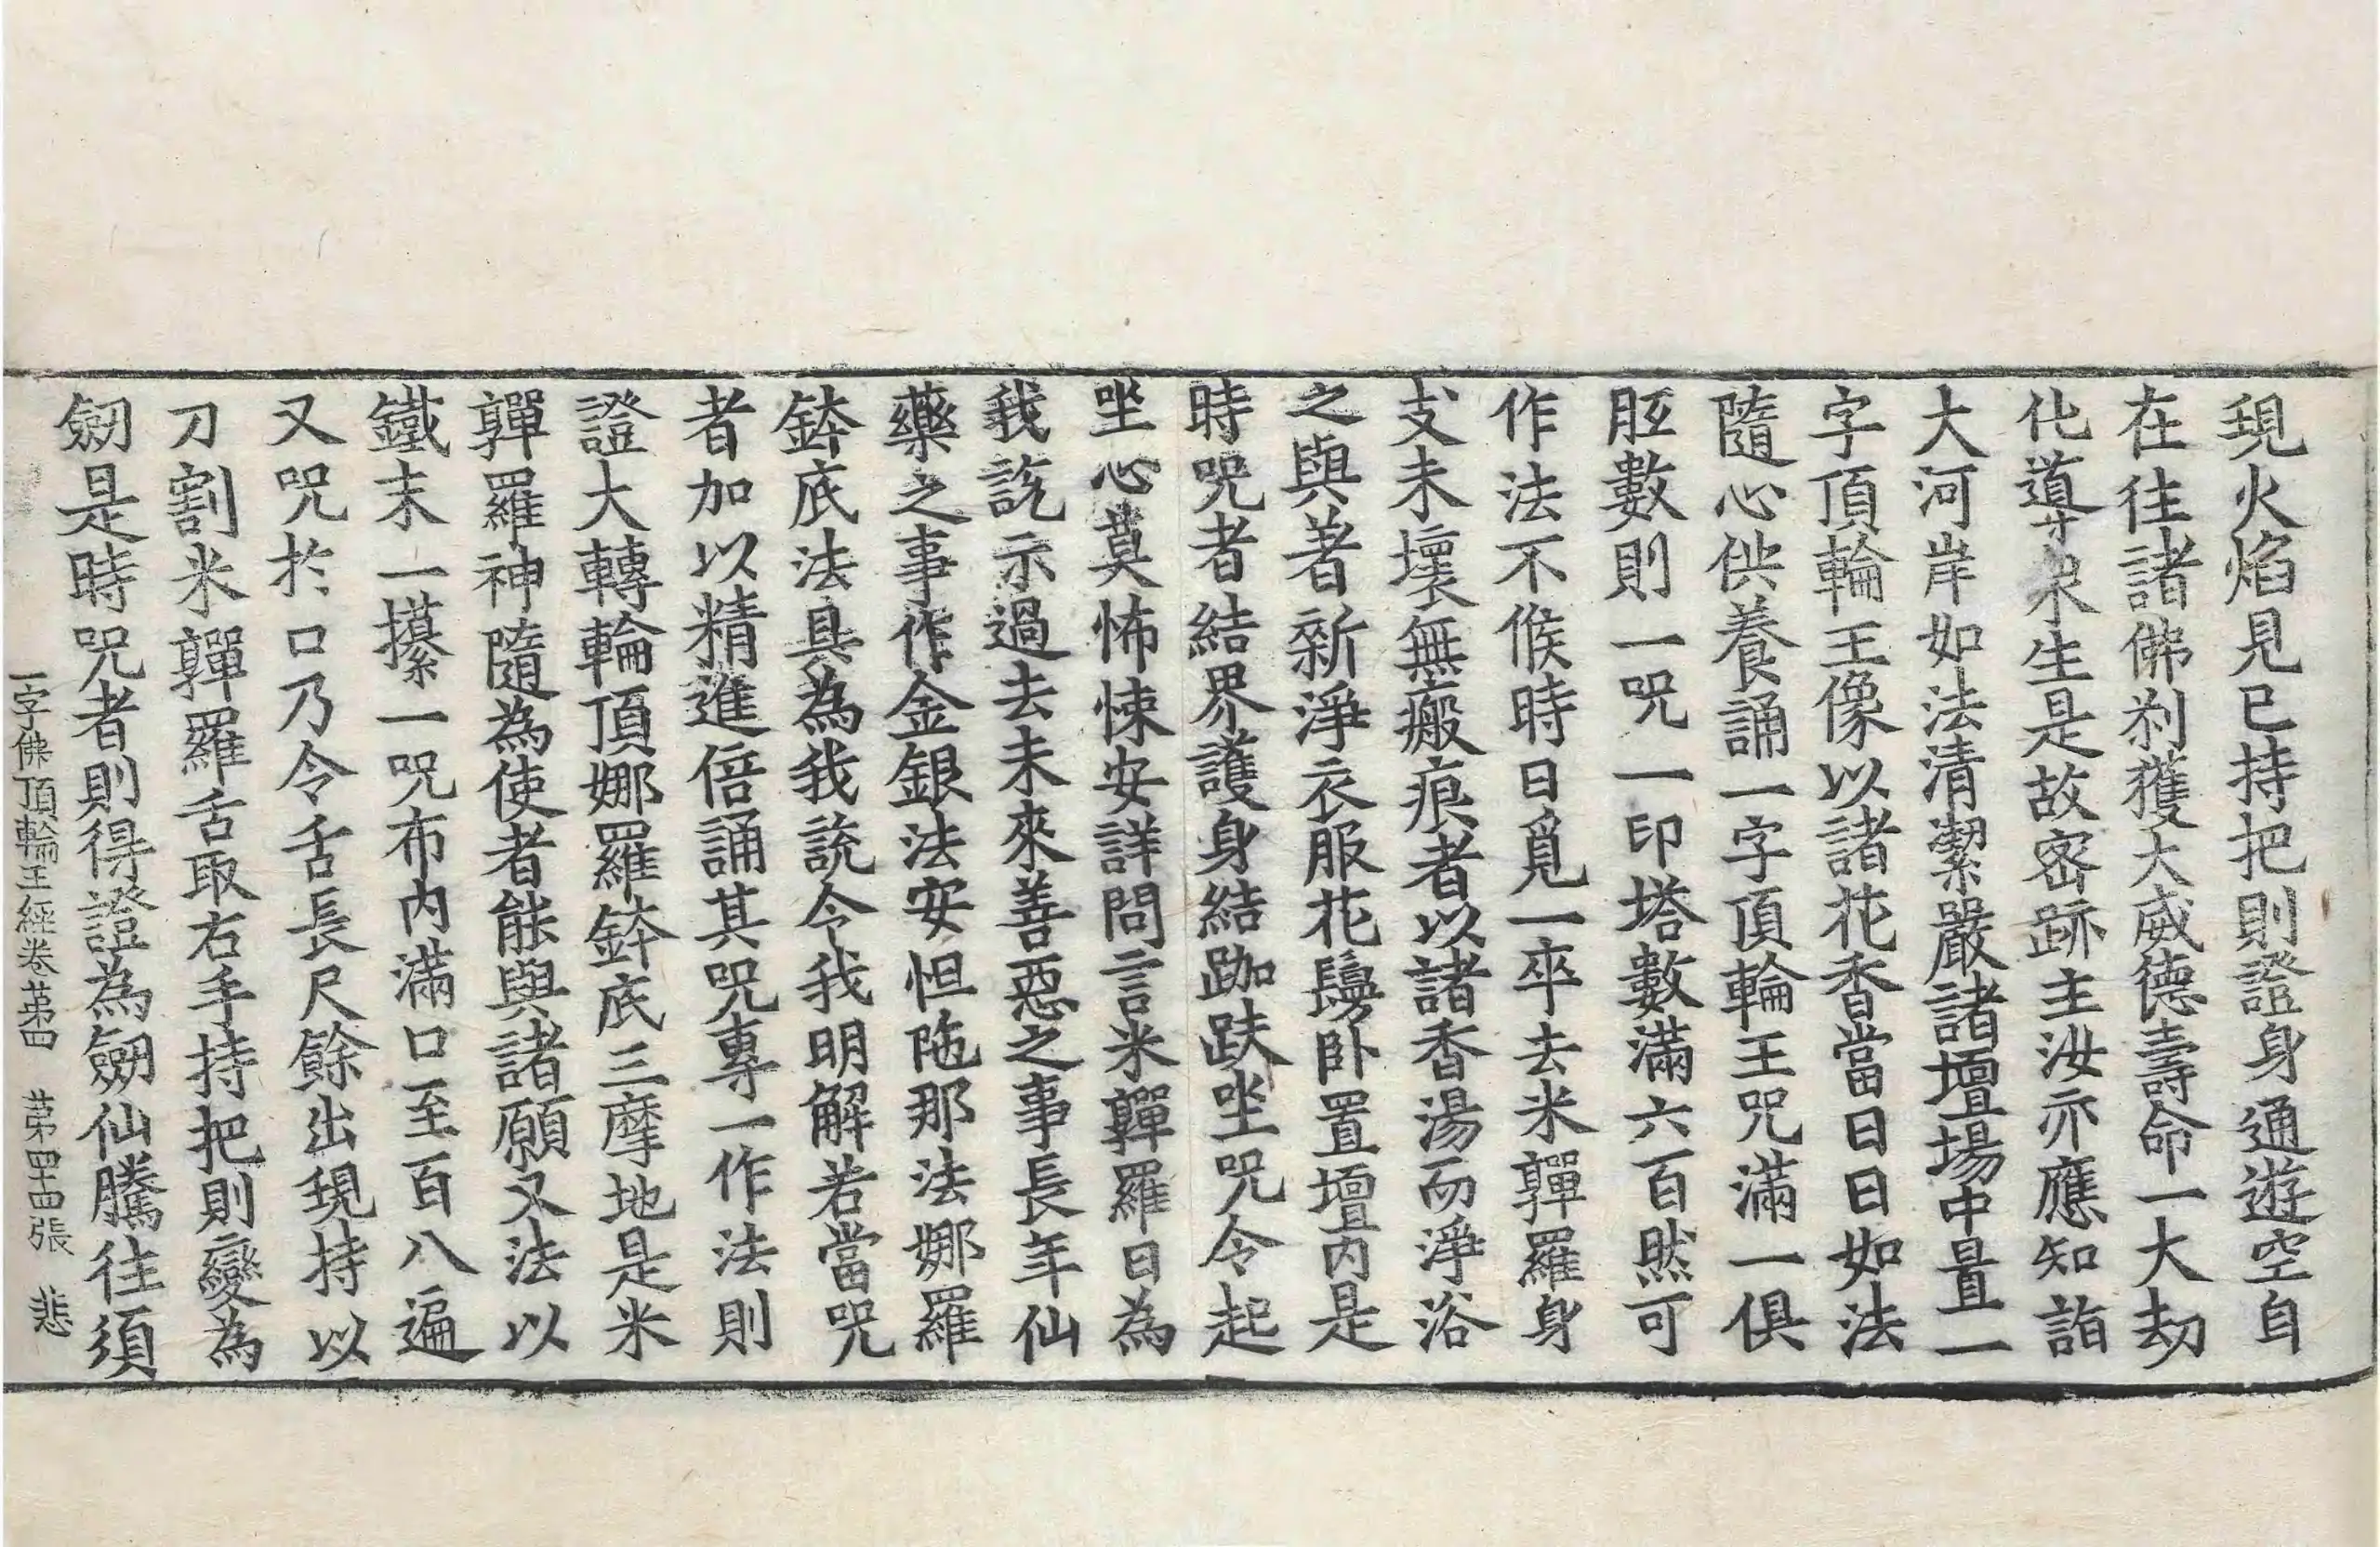 現火焰見已持把則證身通遊空自
在往諸佛刹獲大威德壽命一大劫
化導眾生是故密跡主汝亦應知詣
大河岸如法清潔嚴諸壇場中置一
字頂輪王像以諸花香當日日如法
隨心供養誦一字頂輪王咒滿一俱
胝數則一咒一印塔數滿六百然可
作法不候時日覓一卒去米嚲羅身
支未壞無瘢痕者以諸香湯而淨浴
之與著新淨衣服花鬘臥置壇內是
時咒者結界護身結跏趺坐咒令起
坐心莫怖悚安詳問言米嚲羅曰為
我說示過去未來善惡之事長年仙
藥之事作金銀法安怛陁那法娜羅
鉢底法具為我說令我明解若當咒
者加以精進倍誦其咒專一作法則
證大轉輪頂娜羅鉢底三摩地是米
嚲羅神隨為使者能與諸願又法以
鐵末一攥一咒布內滿口至百八遍
又咒於口乃令舌長尺餘出現持以
刀割米嚲羅舌取右手持把則變為
劒是時咒者則得證為劒仙騰往須
一字佛頂輪王經卷苐四　苐四十四張　悲